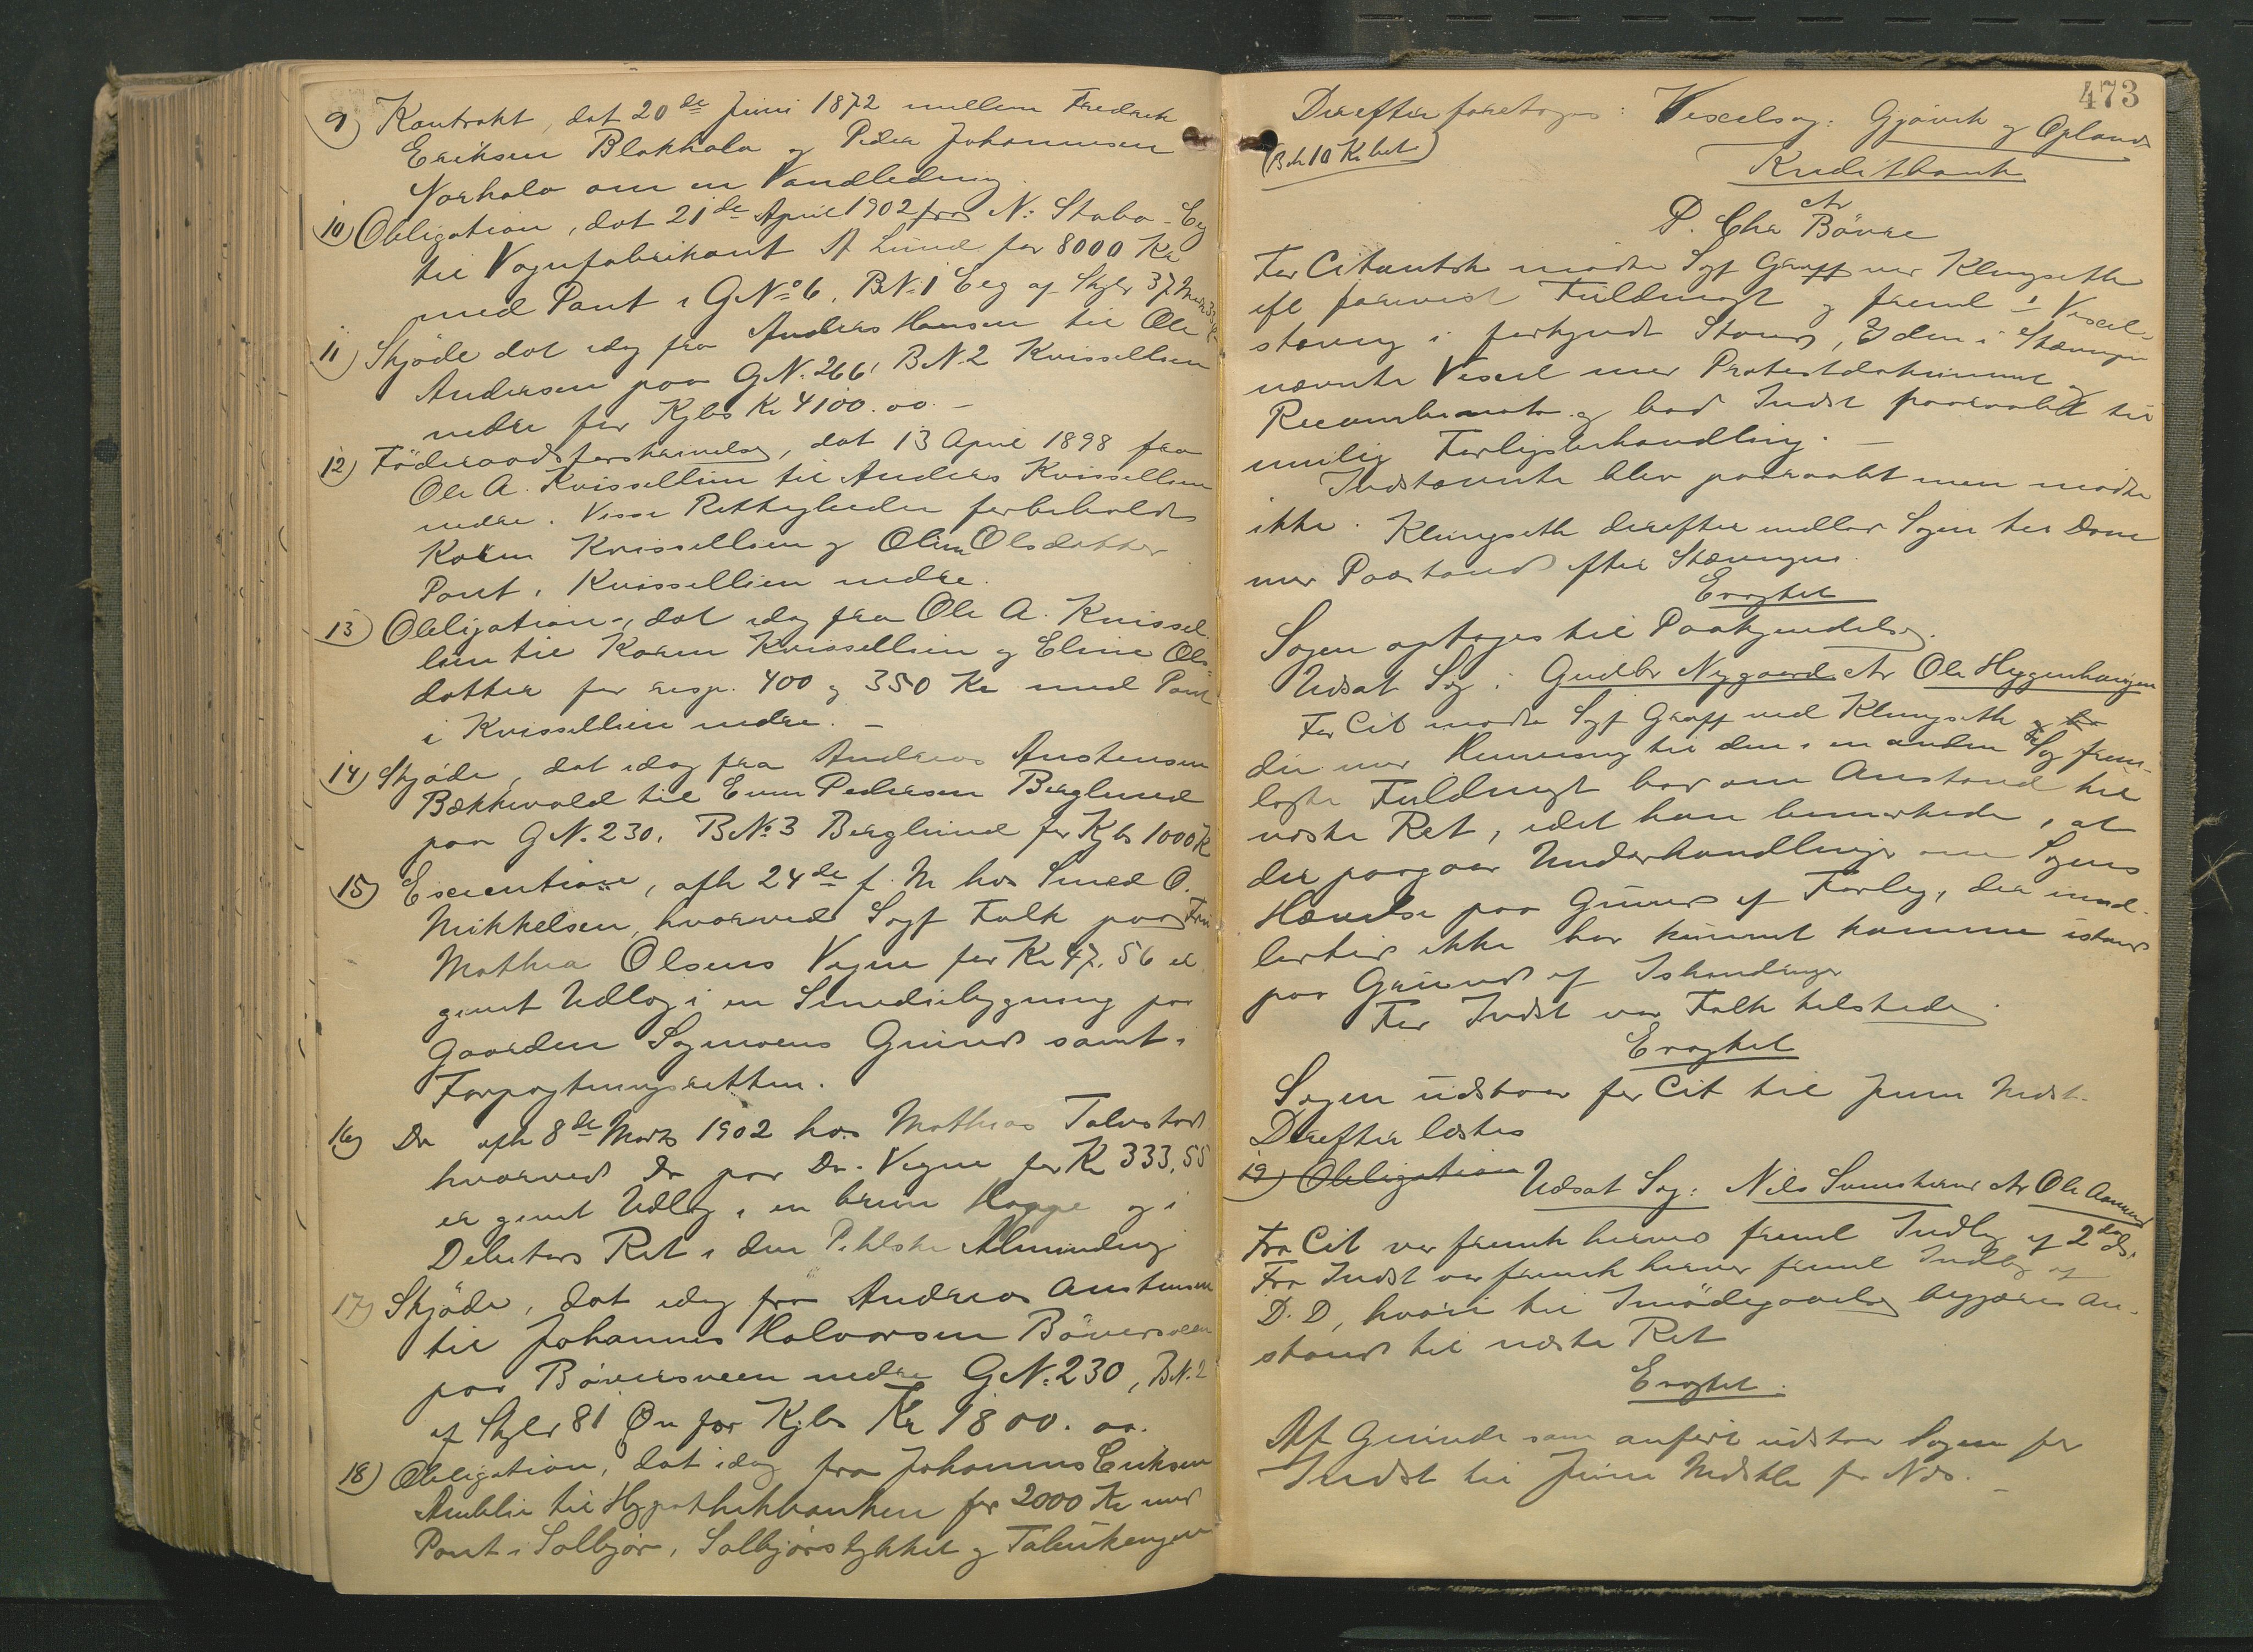 9) Kontrakt, dat 20de Juni 1872 mellem Fredrik
Eriksen Blakhala og Peder Johannesen
Norhala om en Vandledning
10) Obligation, dat 21de April 1902 fra N: Stabo-Eeg
til Vognfabrikant A Lund for 8000 Kr
med Pant i GNo 6, BN: 1 Eeg af Skyld 37 Mark
11) Skjöde dat idag fra Anders Hansen til Ole
Andersen paa GN. 266, BN. 2 Kvissellien
nedre for Kjbs Kr 4100.00.–
12) Föderaadsforskrivelse, dat 13 April 1898 fra
Ole A. Kvissellien til Anders Kvissellien
nedre. Visse Rettigheder forbeholdt
Karen Kvissellien og Oline Olsdatter
Pant i Kvissellien nedre.
13) Obligation, dat idag fra Ole A. Kvissel-
lien til Karen Kvissellien og Eline Ols-
datter for resp. 400 og 350 Kr med Pant
i Kvissellien nedre. –
14) Skjöde, dat idag fra Andreas Austensen
Bækkevold til Even Pedersen Berglund
paa GN. 230, BNo 3 Berglund for Kjbs 1000 Kr
15) Execution, afh 24de f. M hos Smed O.
Mikkelsen, hvorved Sagf Falk paa Fru
Mathea Olsens Vegne for Kr 47.56 er
givet Udlæg i en Smediebygning paa
Gaarden Sogmoens Grund samt i
Forpagtningsretten.
16) Do afh 8de Marts 1902 hos Mathias Talustad
hvorved Do paa Do. Vegne for Kr 333,55
er givet Udlæg i en brun Hoppe og i
Debitors Ret i den Pihlske Alminding
17) Skjöde, dat idag fra Andreas Austensen
til Johannes Halvorsen Böversveen
paa Böversveen nedre GN: 230, BN. 2
af Skyld 81 Öre for Kjbs Kr 1800.00.
18) Obligation, dat idag fra Johannes Eriksen
Amblie til Hypothekbanken for 2000 Kr med
Pant i Solbjör, Solbjörstykket og
473
Derefter foretoges: Vexelsag: Gjövik og Oplands
(Bet 10 Kr bet)
Kreditbank
ctr
P. Chr Bövre
For Citantsk mödte Sagf Graff ved Klingseth
efl forevist Fuldmagt og freml 1 Vexel-
stevning i forkyndt Stand, 2 den i Stævningen
nævnte Vexel med Protestdokument og
Recambionota og bad Indst paaraabt til
mulig Forligsbehandling. –
Indstævnte blev paaraabt men mödte
ikke. Klingseth derefter indlod Sagen til Dom
med Paastand efter Stævningen.
Eragtet
Sagen optages til Paakjendelse.
Udsat Sag: Gudbr Nygaard ctr Ole Hyggenhaugen
For Cit mödte Sagf Graff ved Klingseth og
der med Henvisning til den i en anden Sag frem-
lagte Fuldmagt bad om Anstand til
næste Ret, idet han bemærkede, at
der paagaar Underhandlinger om Sagens
Hævelse paa Grund af Forlig, der imid-
lertid ikke har kunnet komme istand
paa Grund af Ishindringer
For Indst var Falk tilstede.
Eragtet
Sagen udstaar for Cit til Juni Mdst.
Derefter læstes
19) Obligation
Udsat Sag: Nils Svenskerud ctr Ole Aamund
Fra Cit var fremk herved freml Indlæg af 2den ds.
Fra Indst var fremk herved freml Indlæg af
D. D, hvori til Imödegaaelse begjæres An-
stand til næste Ret
Eragtet.
Af Grunde som anfört udstaar Sagen for
Indst til Juni Mdsthi f Nds. –